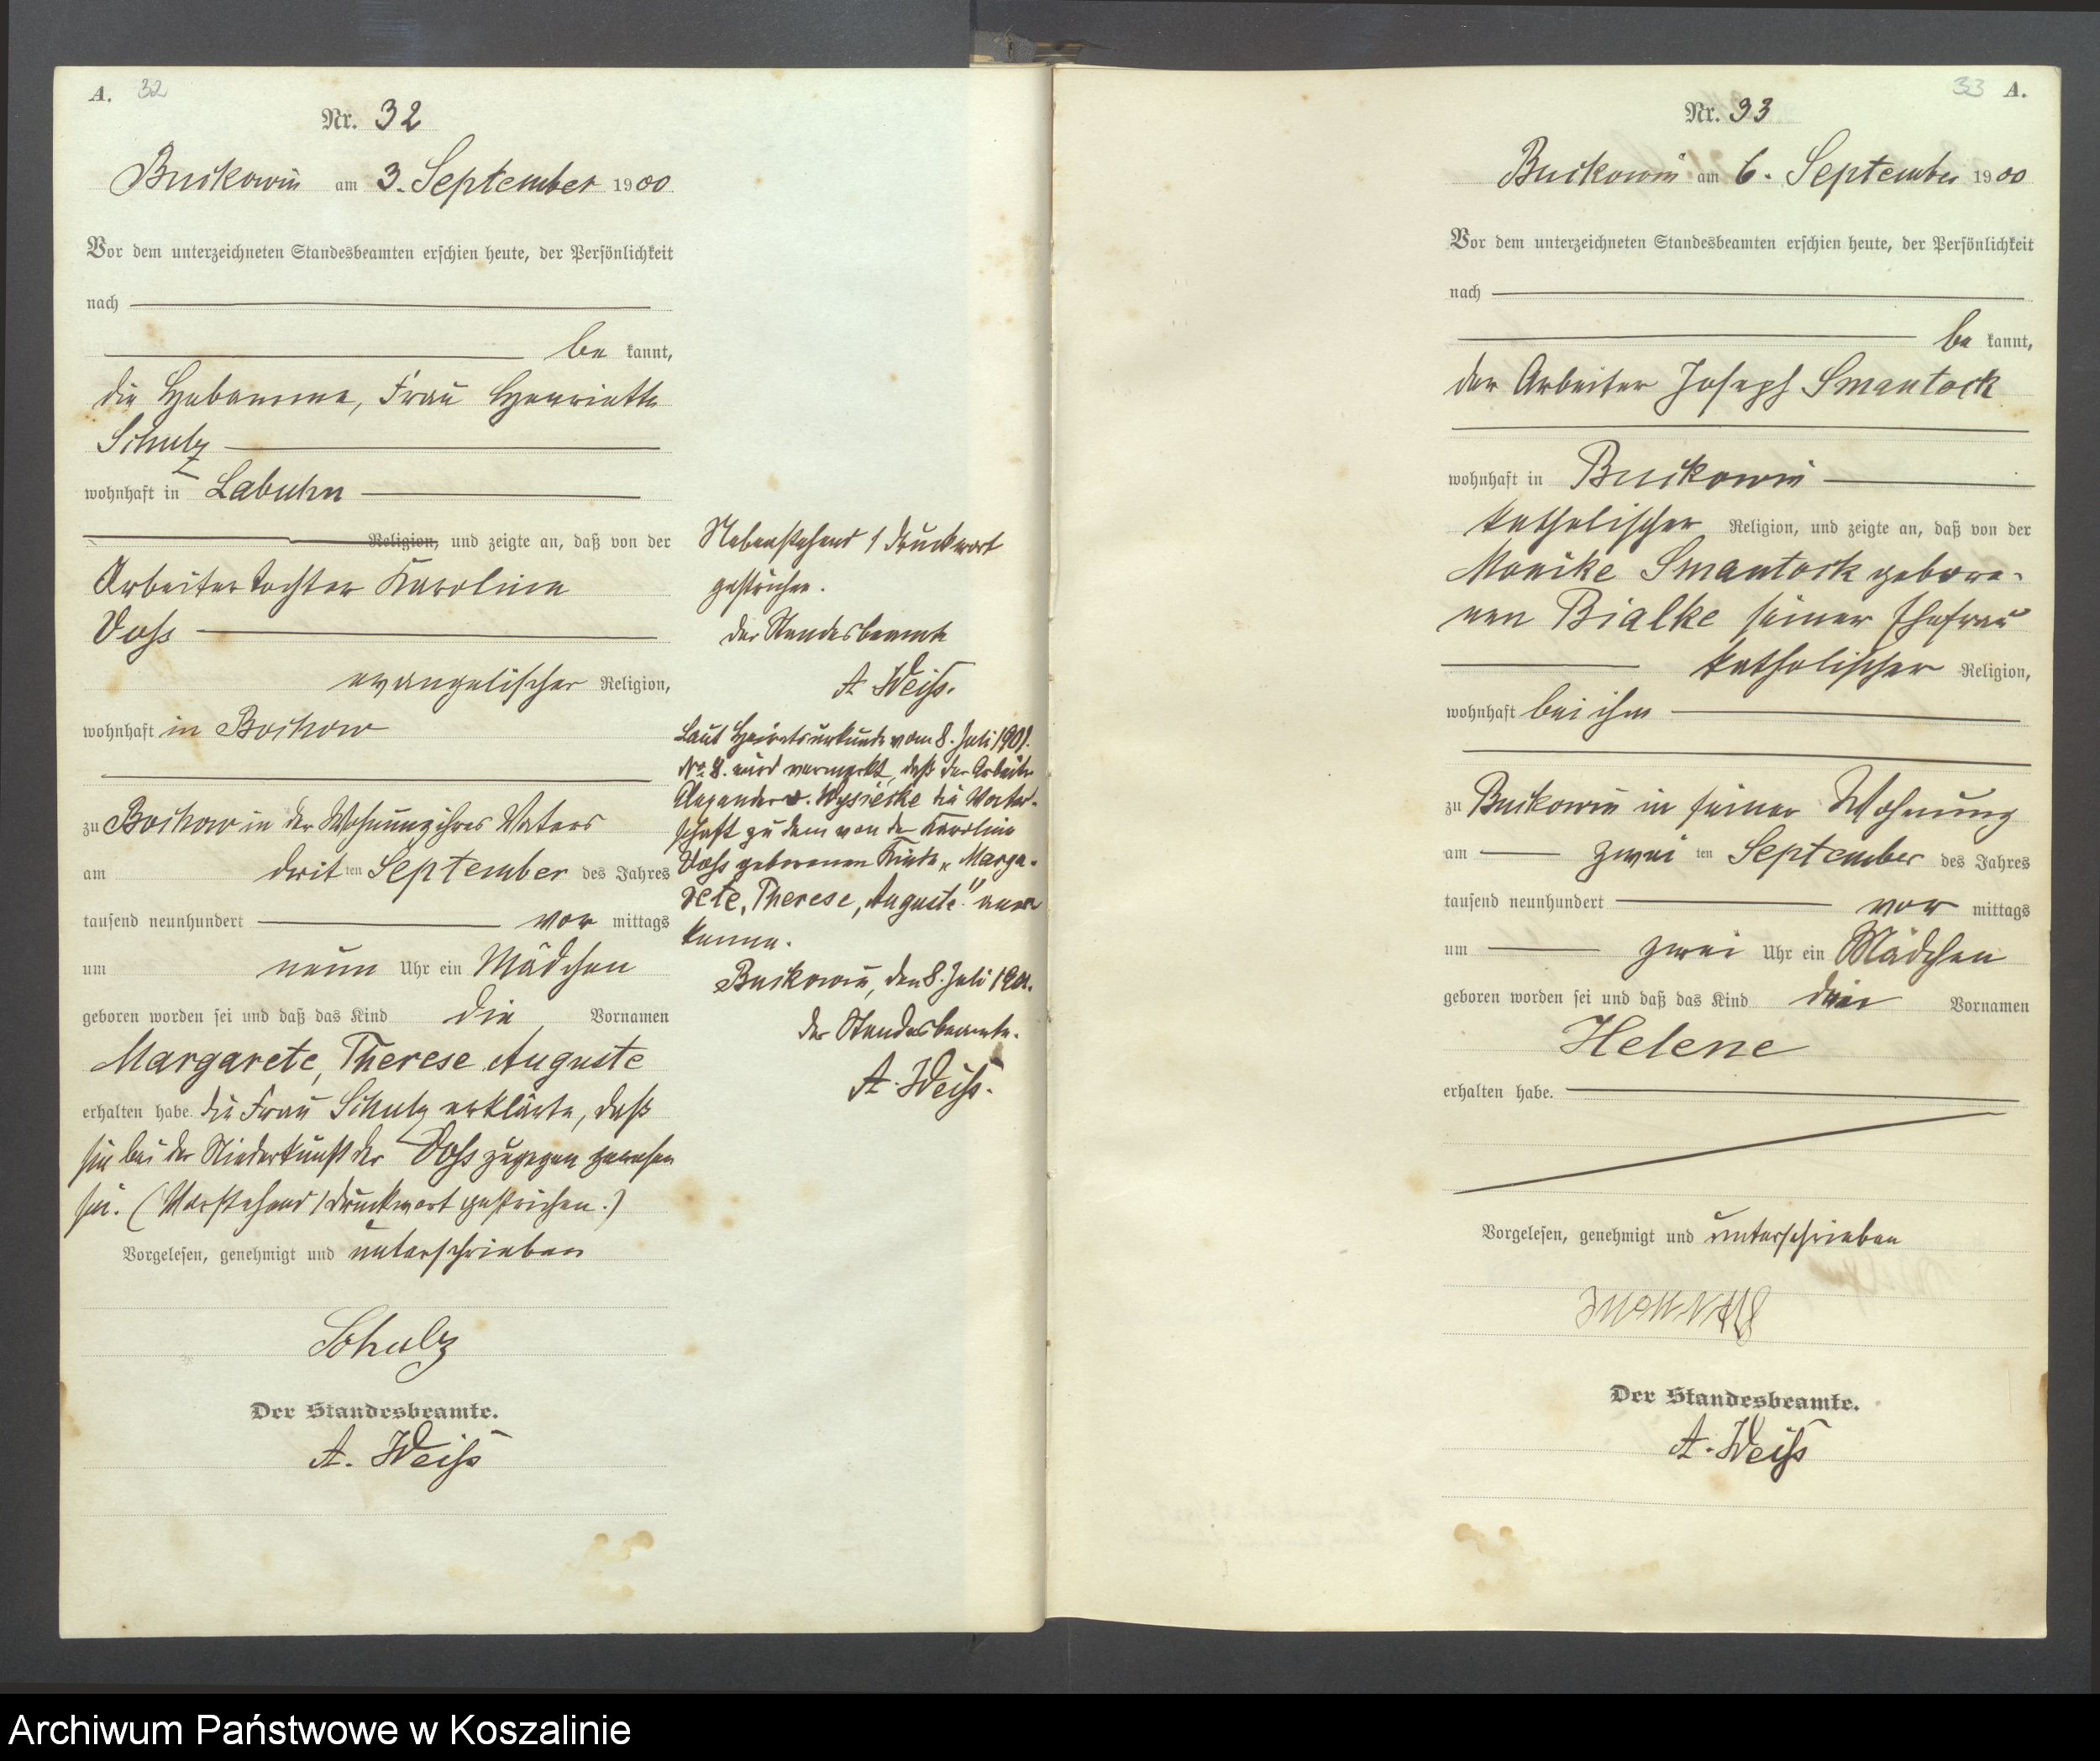 A. 32
Nr. 32
Buckowin am 3. September 1900
Vor dem unterzeichneten Standesbeamten erschien heute, der Persönlichkeit
nach
be kannt,
die Hebamme, Frau Henriette
Schulz
wohnhaft in Labuhn
Religion, und zeigte an, daß von der
Arbeitertochter Karoline
Voß
evangelischer Religion,
wohnhaft in Bochow
zu Bochow in der Wohnung ihres Vaters
am dritten September des Jahres
tausend neunhundert vor mittags
um neun Uhr ein Mädchen
geboren worden sei und daß das Kind die Vornamen
Margarete, Therese Auguste
erhalten habe. Die Frau Schulz erklärte, daß
sie bei der Niederkunft der Voß zugegen gewesen
sei. (Vorstehend 1 Druckwort gestrichen.)
Vorgelesen, genehmigt und unterschrieben
Schulz
Der Standesbeamte.
A. Weiß
Nebenstehend 1 Druckwort
gestrichen.
Der Standesbeamte
A Weiß.
Laut Heiratsurkunde vom 8. Juli 1901.
No. 8. wird vermerkt, daß der Arbeiter
Alexander v. Wysiecke die Vater-
schaft zu dem von der Karoline
Voß geborenen Kinde „Marga-
rete, Therese, Auguste" aner
kenne.
Buckowin, den 8. Juli 1901.
Der Standesbeamte.
A. Weiß.
33 A.
Nr. 33
Buckowin am 6. September 1900
Vor dem unterzeichneten Standesbeamten erschien heute, der Persönlichkeit
nach
be kannt,
der Arbeiter Joseph Smantock
wohnhaft in Buckowin
katholischer Religion, und zeigte an, daß von der
Monike Smantock gebore-
nen Bialke seiner Ehefrau
katholischer Religion,
wohnhaft bei ihm
zu Buckowin in seiner Wohnung
am zwei ten September des Jahres
tausend neunhundert vor mittags
um zwei Uhr ein Mädchen
geboren worden sei und daß das Kind den Vornamen
Helene
erhalten habe.
Vorgelesen, genehmigt und unterschrieben
Der Standesbeamte.
A. Weiß
Archiwum Państwowe w Koszalinie